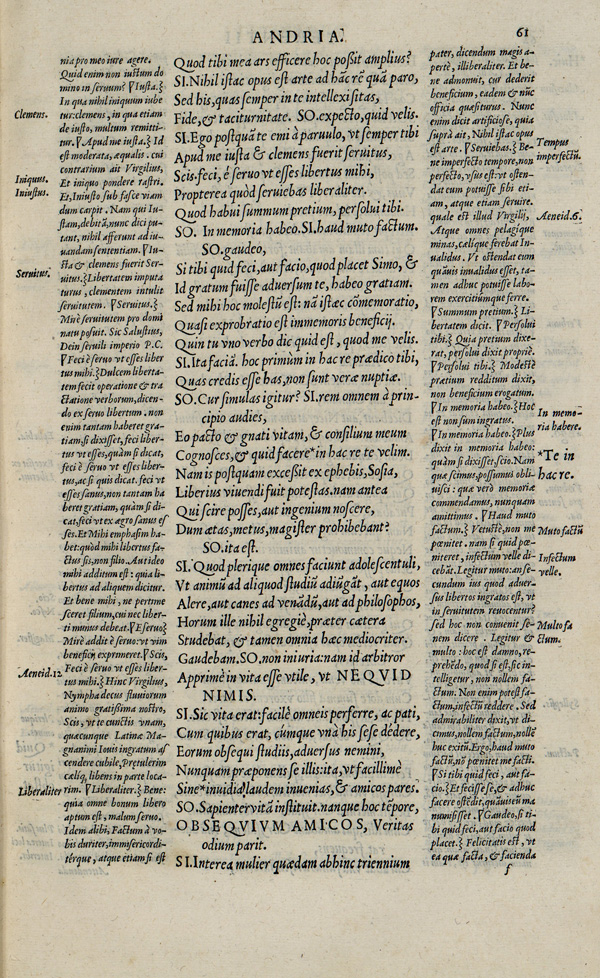 ANDRIA.
61
nia pro meo iure agere.
Quid enim non iustum do
mino in seruum? ∇Iusta.⸹
In qua nihil iniquum iube
tur: clemens, in qua etiam
de iusto, multum remitti-
tur. ∇Apud me iusta.⸹ Id
est moderata, æqualis. cui
contrarium ait Virgilius,
Et iniquo pondere rastri.
Et, Iniusto sub fasce viam
dum carpit. Nam qui Iu-
stam, debitā, nunc dici pu-
tant, nihil afferunt ad iu-
uandam sententiam. ∇Iu-
sta & clemens fuerit Ser-
uitus.⸹ Libertatem imputa
turus, clementem intulit
seruitutem. ∇Seruitus.⸹
Mirè seruitutem pro domi
natu posuit. Sic Salustius,
Dein seruili imperio P.C.
∇Feci è seruo vt esses liber
tus mihi.⸹ Dulcem liberta-
tem fecit operatione & tra
ctatione verborum, dicen-
do ex seruo libertum. non
enim tantam haberet gra-
tiam, si dixisset, feci liber-
tus vt esses, quàm si dicat,
feci è seruo vt esses liber-
tus, ac si quis dicat. feci vt
esses sanus, non tantam ha
beret gratiam, quàm si di-
cat, feci vt ex ægro sanus es
ses. Et Mihi emphasim ha-
bet: quòd mihi libertus fa-
ctus sis, non filio. Aut ideo
mihi additum est: quia li-
bertus ad aliquem dicitur.
Et bene mihi, ne pertime
sceret filium, cui nec liber-
ti munus debeat. ∇E seruo⸹
Mirè addit è seruo: vt vim
beneficij exprimeret. ∇Scis,
Feci è seruo vt esses liber-
tus mihi.⸹ Hinc Virgilius,
Nympha decus fluuiorum
animo gratissima nostro,
Scis, vt te cunctis vnam,
quæcunque Latinæ Mag-
nanimi Iouis ingratum as
cendere cubile, Prætulerim
cæliq; libens in parte loca-
rim. ∇Liberaliter.⸹ Bene:
quia omne bonum libero
aptum est, malum seruo.
Idem alibi, Factum à vo-
bis duriter, immisericordi-
térque, atque etiam si est
Clemens.
Iniquus.
Iniustus.
Seruitus.
Aeneid.12
Liberaliter
Quod tibi mea ars efficere hoc possit amplius?
SI. Nihil istac opus est arte ad hāc rē quā paro,
Sed his, quas semper in te intellexi sitas,
Fide, & taciturnitate. SO. expecto, quid velis.
SI. Ego postquā te emi à paruulo, vt semper tibi
Apud me iusta & clemens fuerit seruitus,
Scis. feci, è seruo vt esses libertus mihi,
Propterea quòd seruiebas liberaliter.
Quod habui summum pretium, persolui tibi.
SO. In memoria habeo. SI. haud muto factum.
SO. gaudeo,
Si tibi quid feci, aut facio, quod placet Simo, &
Id gratum fuisse aduersum te, habeo gratiam.
Sed mihi hoc molestū est: nā istæc cōmemoratio,
Quasi exprobratio est immemoris beneficij.
Quin tu vno verbo dic quid est, quod me velis.
SI. Ita faciā. hoc primùm in hac re prædico tibi,
Quas credis esse has, non sunt veræ nuptiæ.
SO. Cur simulas igitur? SI. rem omnem à prin-
cipio audies,
Eo pacto & gnati vitam, & consilium meum
Cognosces, & quid facere* in hac re te velim.
Nam is postquam excessit ex ephebis, Sosia,
Liberius viuendi fuit potestas. nam antea
Qui scire posses, aut ingenium noscere,
Dum ætas, metus, magister prohibebant?
SO. ita est.
SI. Quod plerique omnes faciunt adolescentuli,
Vt animū ad aliquod studiū adiūgāt, aut equos
Alere, aut canes ad venādū, aut ad philosophos,
Horum ille nihil egregiè, præter cætera
Studebat, & tamen omnia hæc mediocriter.
Gaudebam. SO. non iniuria: nam id arbitror
Apprimè in vita esse vtile, vt NE QVID
NIMIS.
SI. Sic vita erat: facilè omneis perferre, ac pati,
Cum quibus erat, cūmque vnà his sese dedere,
Eorum obsequi studiis, aduersus nemini,
Nunquam præponens se illis: ita, vt facillimè
Sine* inuidia laudem inuenias, & amicos pares.
SO. Sapienter vitā instituit. nanque hoc tēpore,
OBSEQVIVM AMICOS, Veritas
odium parit.
SI. Interea mulier quædam abhinc triennium
pater, dicendum magis a-
pertè, illiberaliter. Et be-
ne admonuit, cur dederit
beneficium, eadem & nūc
officia quæsiturus. Nunc
enim dicit artificiose, quia
suprà ait, Nihil istac opus
est arte. ∇Seruiebas.⸹ Be-
ne imperfecto tempore, non
perfecto, vsus est: vt osten-
dat eum potuisse sibi eti-
am, atque etiam seruire.
quale est illud Virgilij,
Atque omnes pelagique
minas, cælique ferebat In-
ualidus. Vt ostendat eum
quāuis inualidus esset, ta-
men adhuc potuisse labo-
rem exercitiúmque ferre.
∇Summum pretium.⸹ Li-
bertatem dicit. ∇Persolui
tibi.⸹ Quia pretium dixe-
rat, persolui dixit propriè.
∇Persolui tibi.⸹ Modestè
prætium redditum dixit,
non beneficium erogatum.
∇In memoria habeo.⸹ Hoc
est non sum ingratus.
∇In memoria habeo.⸹ Plus
dixit in memoria habeo:
quàm si dixisset, scio. Nam
quæ scimus, possumus obli-
uisci: quæ verò memoriæ
commendamus, nunquam
amittimus. ∇Haud muto
factum.⸹ Vetustè, non me
pœnitet. nam si quid pœ-
niteret, infectum velle di-
cebāt. Legitur muto: an se-
cundum ius quod aduer-
sus libertos ingratos est, vt
in seruitutem reuocentur?
sed hoc non conuenit se-
nem dicere. Legitur &
multo: hoc est damno, re-
prehēdo, quod si est, sic in-
telligetur, non nollem fa-
ctum. Non enim potest fa-
ctum, infectū reddere. Sed
admirabiliter dixit, vt di-
cimus, nollem factum, nollē
huc exitū. Ergo, haud muto
factū, nō pœnitet me facti.
∇Si tibi quid feci, aut fa-
cio.⸹ Et fecisse se, & adhuc
facere ostēdit, quāuis eū ma
numisisset. ∇Gaudeo, si ti-
bi quid feci, aut facio quod
placet.⸹ Felicitatis est, vt
ea quæ facta, & facienda
Tempus
imperfectū.
Aeneid.6.
In memo-
ria habere.
*Te in
hac re.
Muto factū
Infectum
velle.
Multo fa
ctum.
f